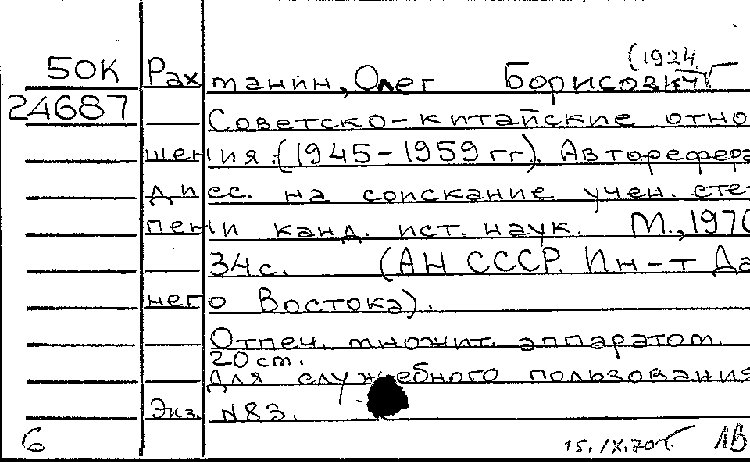 (1924
50К Рахтанин, Олег Борисович
24687
Советско-китайские отно
шения (1945-1959 гг). Авторефера
дисс. на соискание учен. сте
пени канд. ист. наук. М., 1970
34с. (АН СССР. Ин-т Да
него Востока).
Отпеч. множит. аппаратом.
20 cm.
Для служебного пользования
Экз. №83.
6 15.IX.70г.